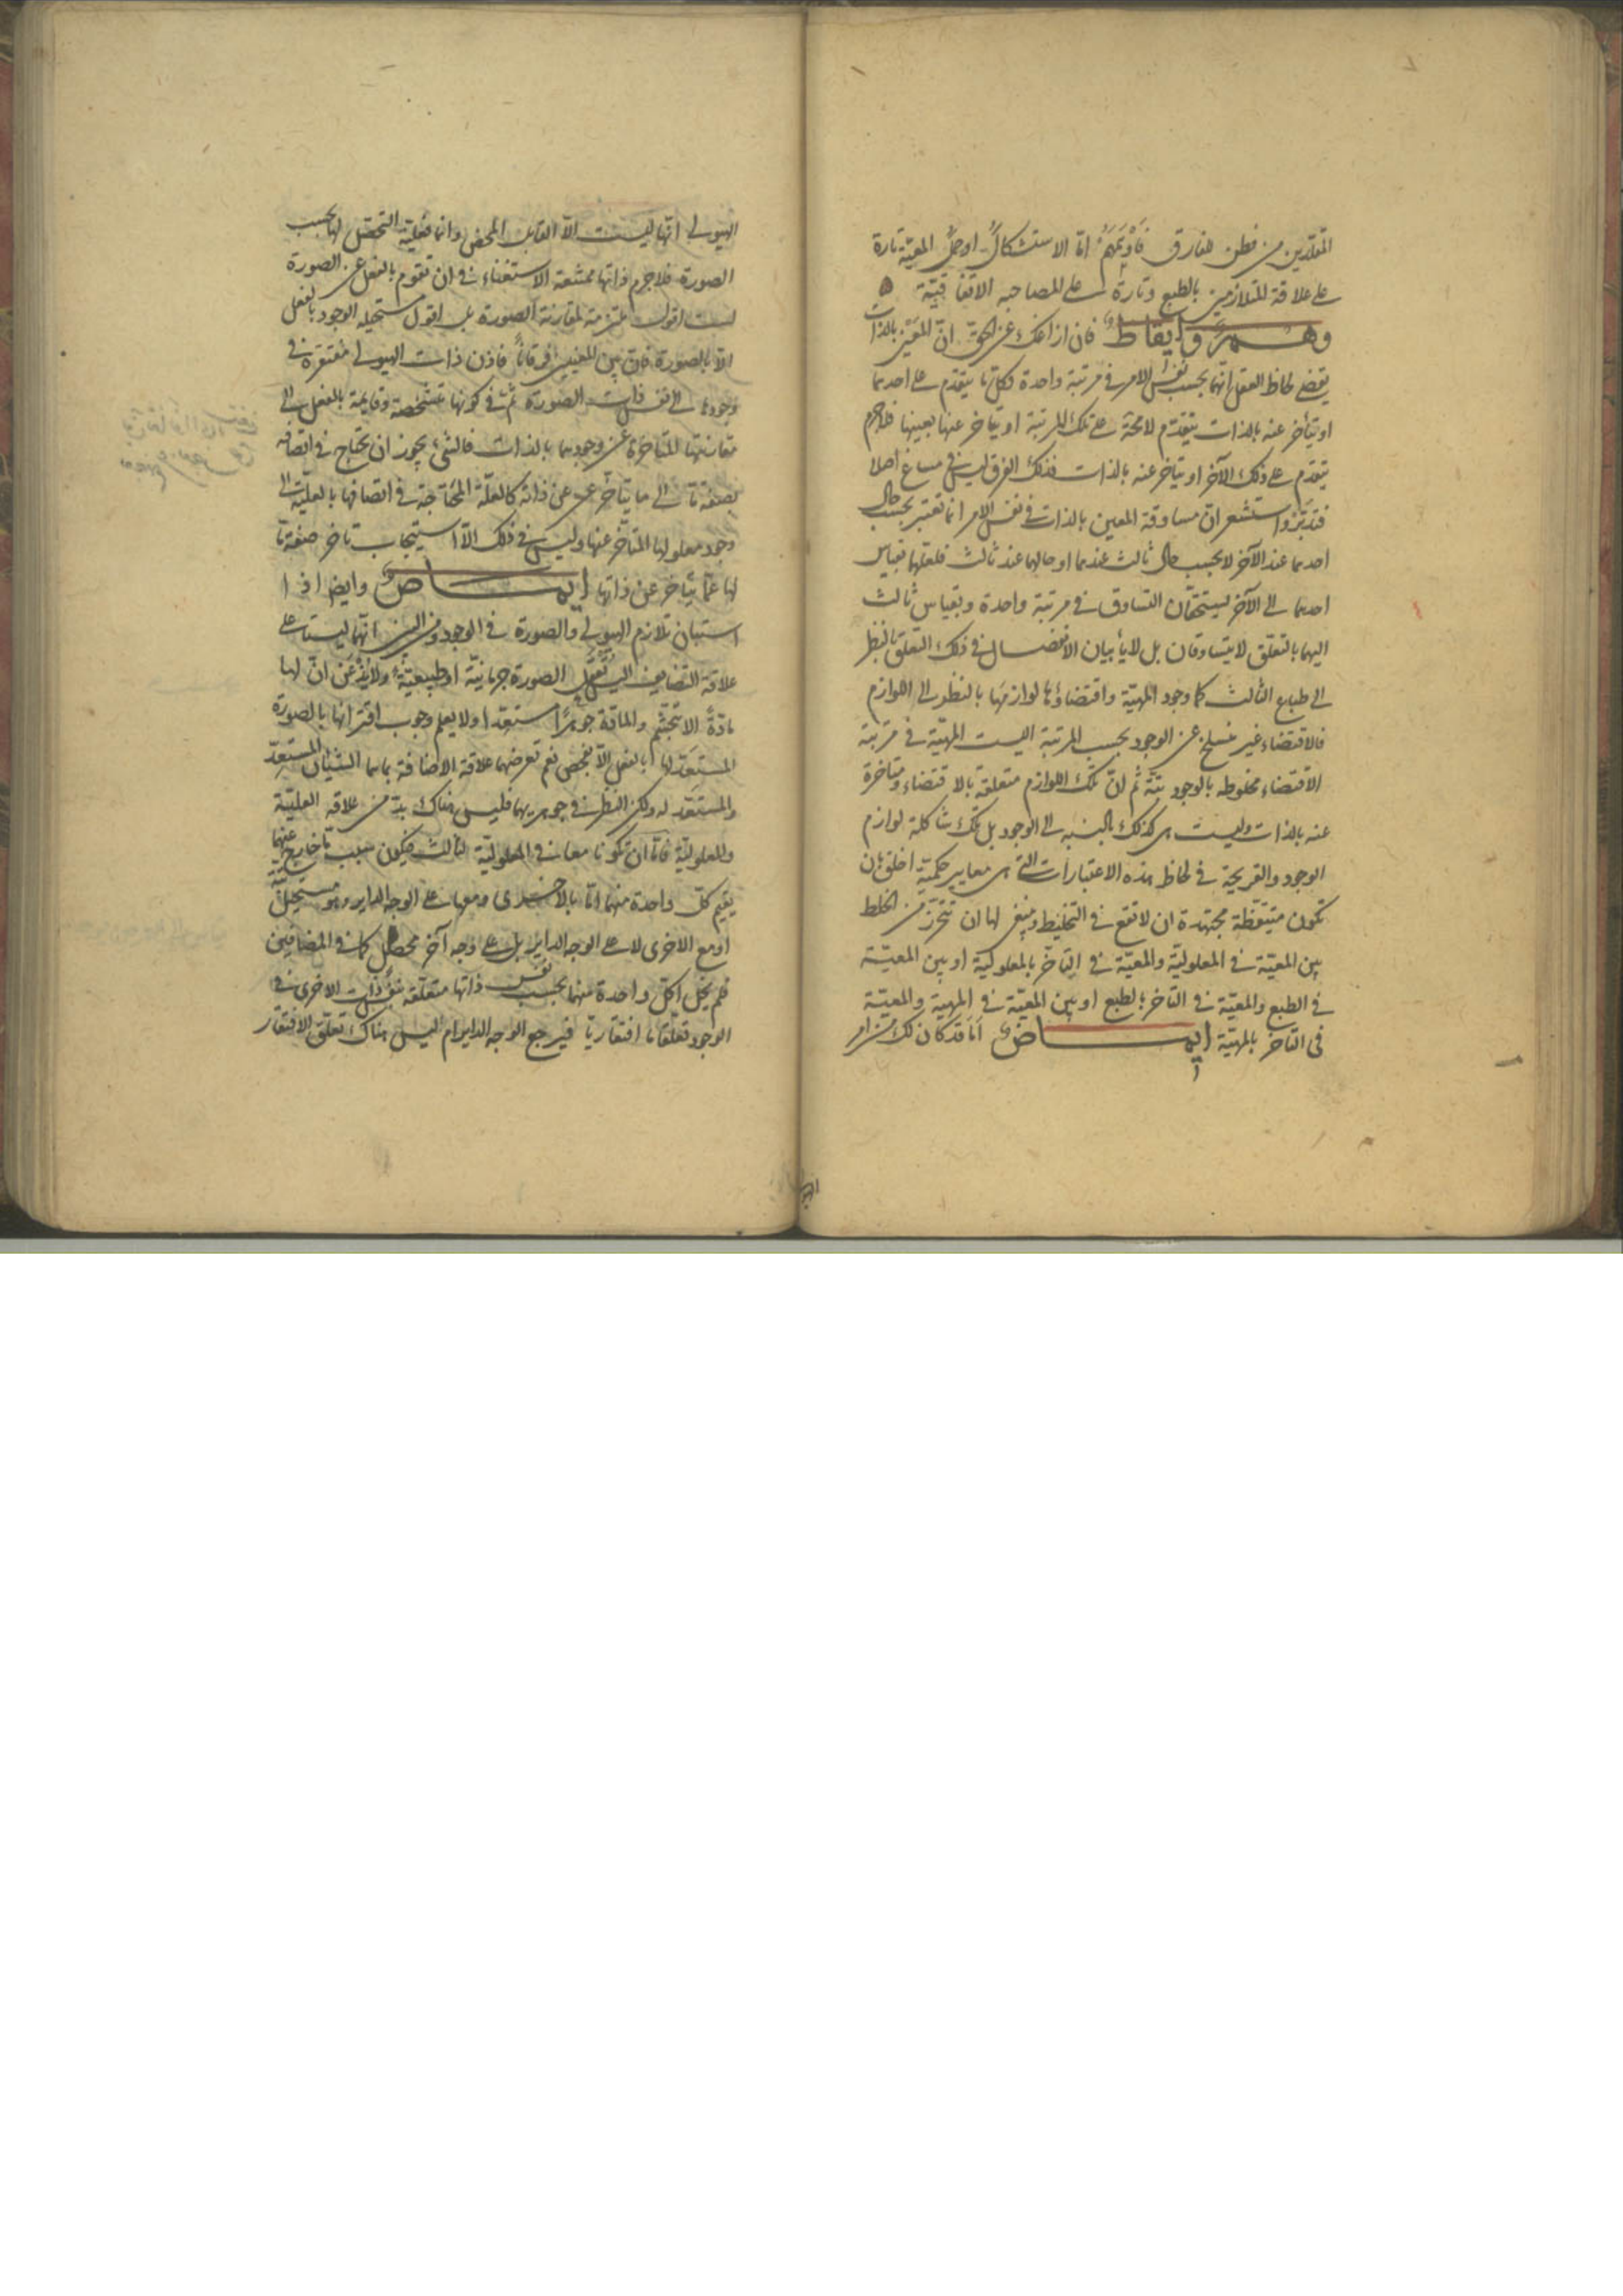 المقلدين من فطن للفارق فاوهمهم اما الاستشكال او حمل المعية تارة
على علاقة المتلازمين بالطبع وتارة على المصاحبة الاتفاقية
وهم وايقاظ فان ازاغك عن الحق ان المعين بالذات
يقضى لحاظ العقل انهما بحسب نفس الامر فى مرتبة واحدة فكل ما يتقدم على احدهما
او يتأخر عنه بالذات يتقدم لا محة على تلك المرتبة او يتاخر عنها بعينها فلا جرم
يتقدم على ذلك الآخر او يتاخر عنه بالذات فذلك الفرق ليس فى مساغ اصلا
فتدبر واستشعر ان مساوقة المعين بالذات فى نفس الامر انما تعتبر بحسب حال
احدهما عند الآخر لا بحسب حال ثالث عندهما او حالهما عند ثالث فلعلهما بقياس
احدهما الى الآخر يستحقان التساوق فى مرتبة واحدة وبقياس ثالث
اليهما بالتعلق لا يتساوقان بل لا يأبيان الانفصال فى ذلك التعلق بالنظر
الى طباع الثالث كما وجود المهية واقتضاؤها لوازمها بالنظر الى اللوازم
فالاقتضاء غير منسلخ عن الوجود بحسب المرتبة اليست المهية فى مرتبة
الاقتضاء مخلوطه بالوجود بتة ثم ان تلك اللوازم متعلقة بالاقتضاء ومتاخرة
عنه بالذات وليست هى كذلك بالنسبه الى الوجود بل تلك شاكلة لوازم
الوجود والقريحة فى لحاظ هذه الاعتبارات التى هى معايير حكمية اخلق بان
تكون متيقظة مجتهدة ان لا تقع فى التخليط وينبغى لها ان تتحرز من الخلط
بين المعية فى المعلولية والمعية فى التاخر بالمعلولية او بين المعية
فى الطبع والمعية فى التاخر بالطبع او بين المعية فى المهية والمعية
فى التاخر بالمهية ايماض اما قد كان لك من امر
الهيولى انها ليست الا القابل المحض وانما فعلية التحصل لها بحسب
الصورة فلا جرم ذاتها ممتنعة الاستغناء فى ان تقوم بالفعل عن الصورة
لست اقول ملتزمة لمقارنة الصورة بل اقول مستحيله الوجود بالفعل
الا بالصورة فان بين المعنيين فرقانا فاذن ذات الهيولى مفتقرة فى
وجودها الى نفس ذات الصورة ثم فى كونها متشخصة وقايمة بالفعل الى
مقارنتها المتاخرة عن وجودهما بالذات فالشئ يجوز ان يحتاج فى اتصافه
بصفة ما الى ما يتاخر عن ذاته كالعلة المحتاجة فى اتصافها بالعلية الى
وجود معلولها المتاخر عنها وليس فى ذلك الا استيجاب تاخر صفة ما
لها عما يتاخر عن ذاتها ايماض وايضا اذا
استبان تلازم الهيولى والصورة فى الوجود ومن البين انهما ليستا على
علاقة التضايف اليس تعقل الصورة جرمانية او طبيعية ولا يذعن ان لها
مادة الا بتجشم والمادة جوهرا مستعدا ولا يعلم وجوب اقترانها بالصورة
المستعد لها بالفعل الا بفحص نعم تعرضهما علاقة الاضافة بما هما الشيآن المستعد
والمستعد له ولكن النظر فى جوهريهما فليس هناك بد من علاقه العلية
والمعلولية فاما ان تكونا معا فى المعلولية لثالث فيكون سبب ما خارج عنهما
يقيم كل واحدة منهما اما بالاخرى ومعها على الوجه الداير وهو مستحيل
او مع الاخرى لا على الوجه الداير بل على وجه آخر محصل كما فى المضافين
فلم يخل اكل واحدة منهما بحسب نفس ذاتها متعلقة بنفس ذات الاخرى فى
الوجود تعلقا ما افتقاريا فيرجع الوجه الداير ام اليس هناك تعلق الافتقار